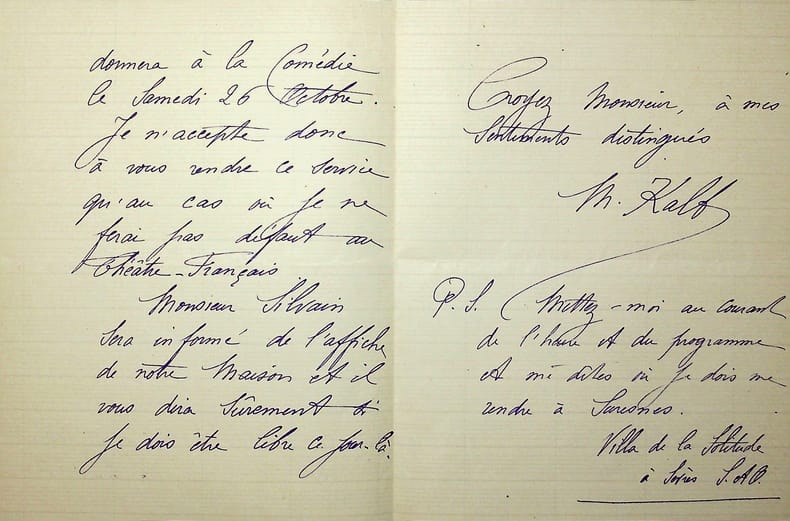 donnera à la Comédie
le Samedi 26 Octobre.
Je n'accepte donc
à vous rendre ce service
qu'au cas où je ne
ferai pas défaut au
Théâtre-Français
Monsieur Silvain
sera informé de l'affiche
de notre Maison et il
vous dira sûrement si
je dois être libre ce jour-là.
Croyez Monsieur, à mes
Sentiments distingués
M. Kalb
P.S. Mettez-moi au courant
de l'heure et du programme
et me dites où je dois me
rendre à Suresnes.
Villa de la Solitude
à Sèvres S. et O.